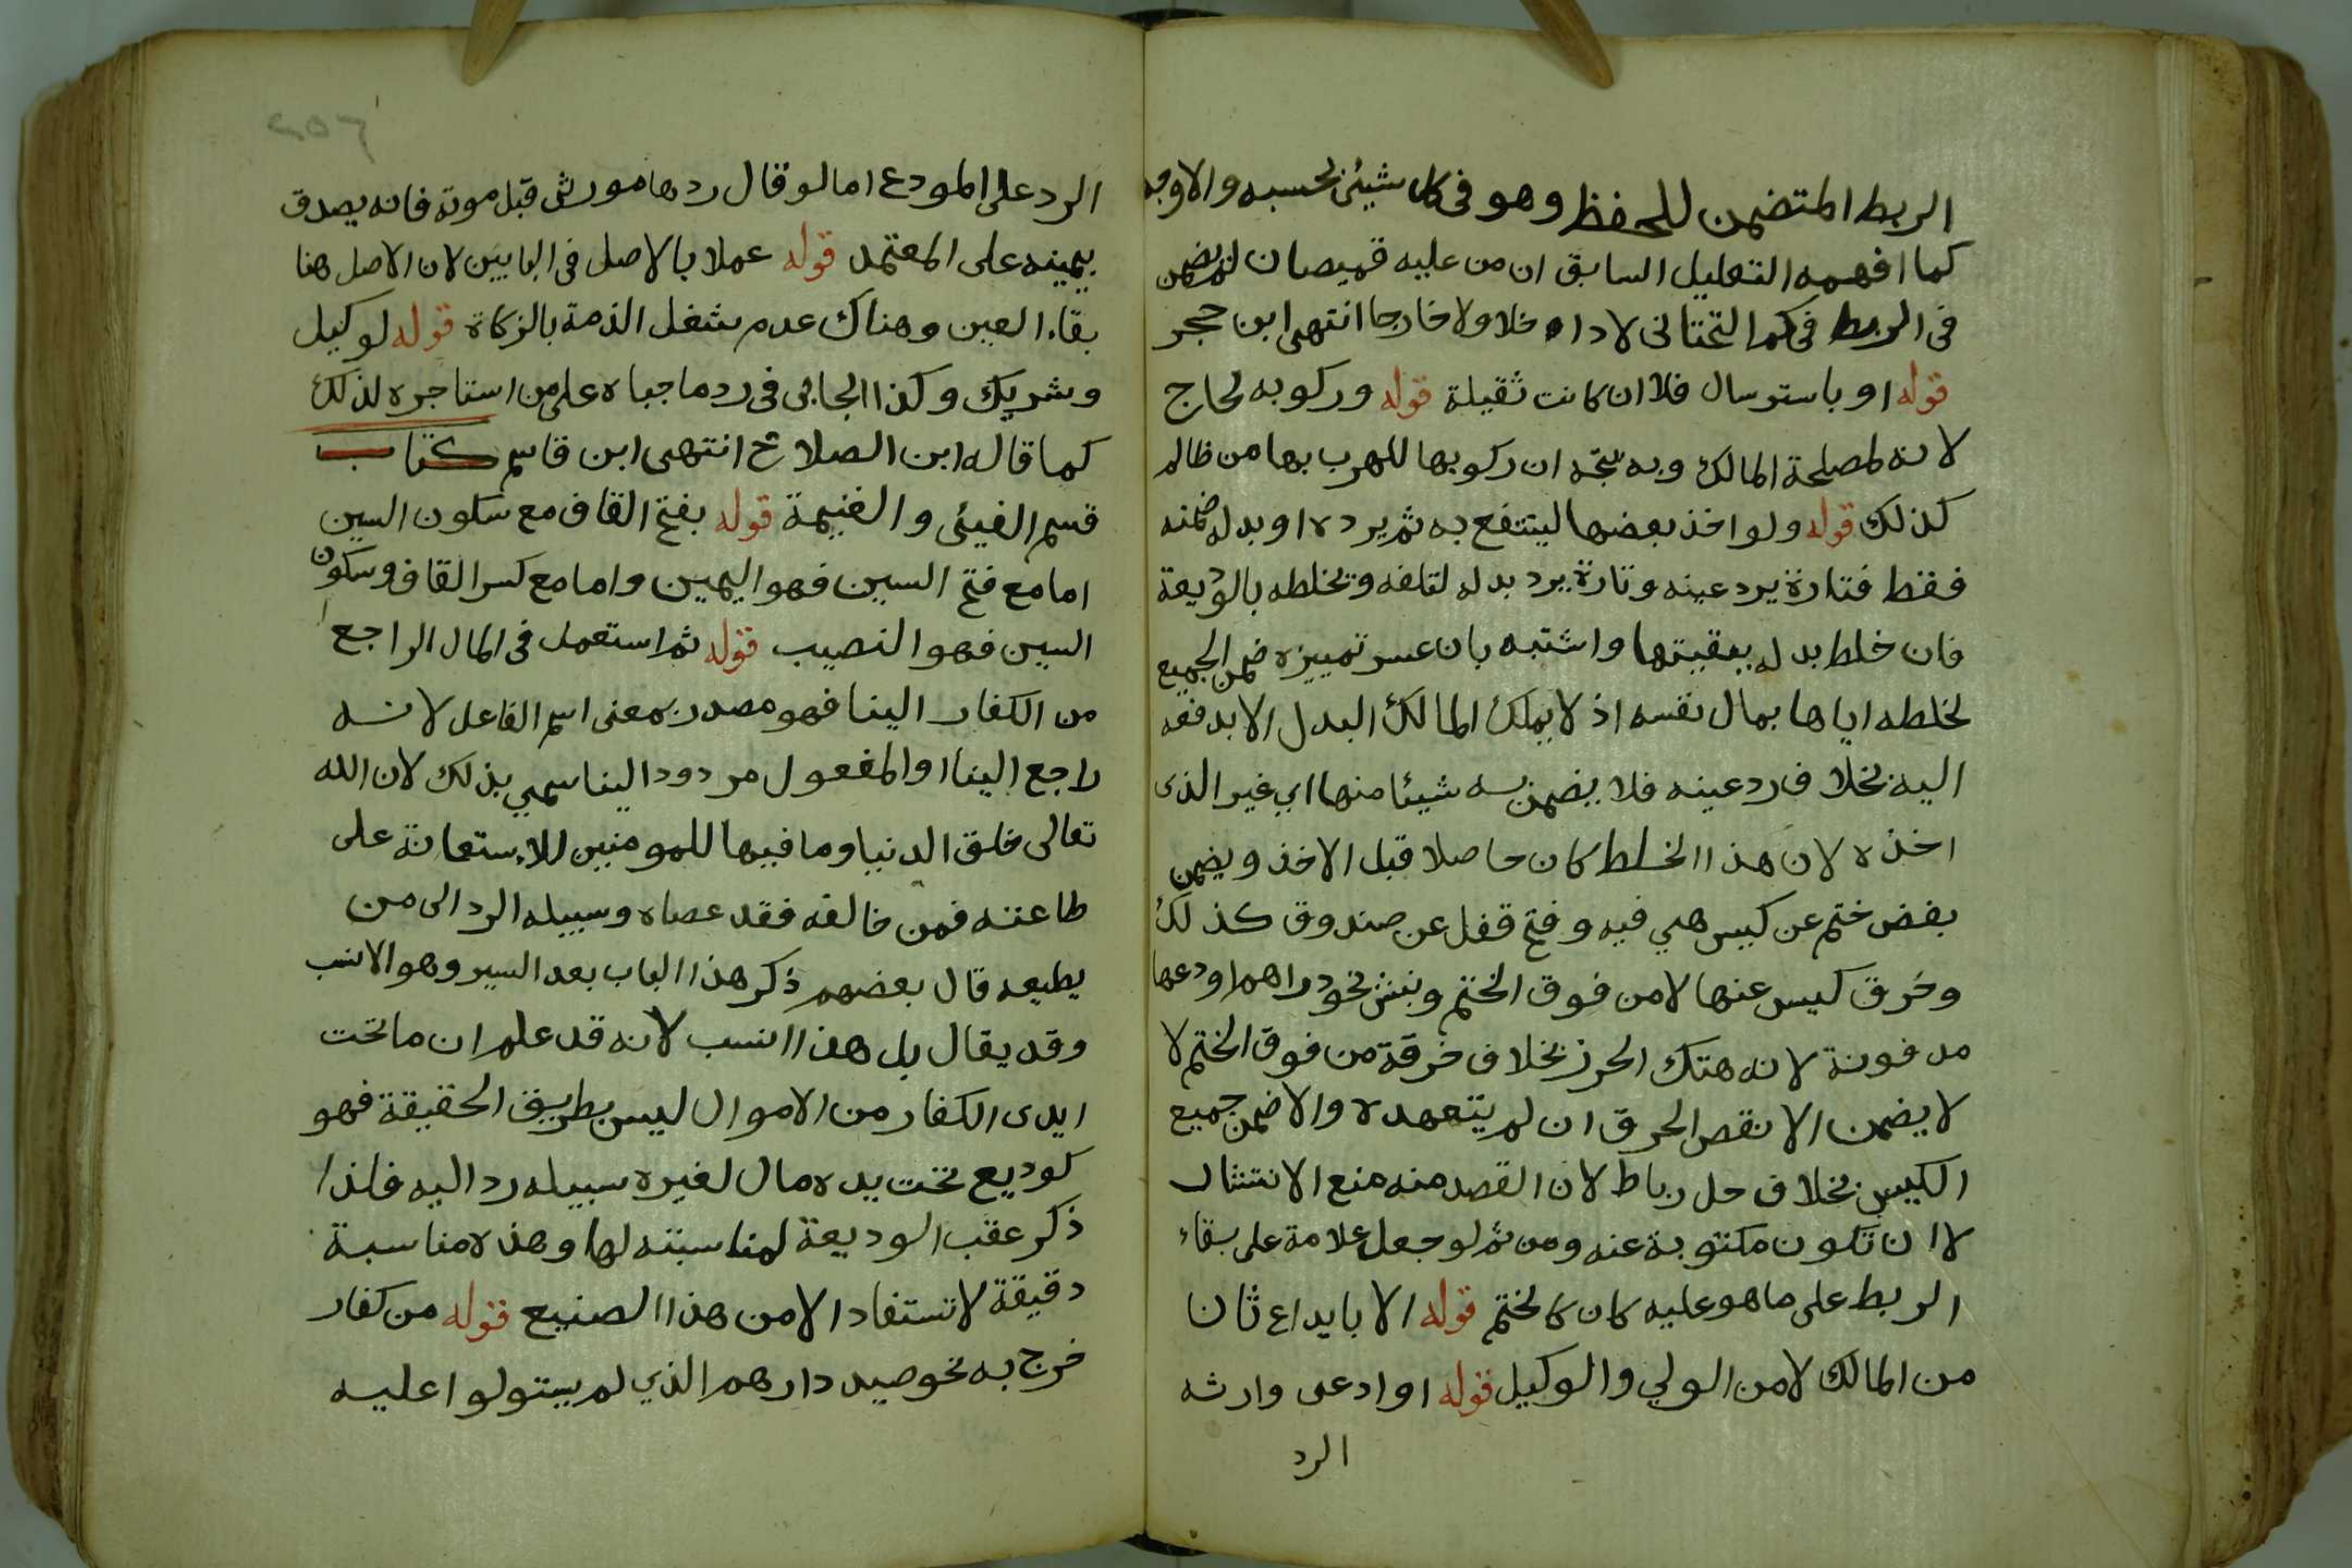 الربط المتضمن للحفظ وهو فى كل شيئ بحسبه والاوجه
كما افهمه التعليل السابق ان من عليه قميصان لم يضمن
فى الربط فى كم التحتانى لا داخلا ولا خارجا انتهى ابن حجر
قوله او باسترسال فلا ان كانت ثقيلة قوله وركوبه لحاج
لانه لمصلحة المالك وبه يتجه ان ركوبها للهرب بها من ظالم
كذلك قوله ولو اخذ بعضها لينتفع به ثم يرده او بدله ضمنه
فقط فتارة يرد عينه وتارة يرد بدله لتلفه وتخلطه بالوديعة
فان خلط بدله ببقيتها واشتبه بان عسر تمييزه ضمن الجميع
لخلطه اياها بمال نفسه اذ لا يملك المالك البدل الا بدفعه
اليه بخلاف رد عينه فلا يضمن به شيئا منها اي غير الذى
اخذه لان هذا الخلط كان حاصلا قبل الاخذ ويضمن
بفض ختم عن كيس هي فيه وفتح قفل عن صندوق كذلك
وخرق كيس عنها لا من فوق الختم وبنبش نحو دراهم اودعها
مدفونة لانه هتك الحرز بخلاف خرقة من فوق الختم لا
لا يضمن الا نقص الحرق ان لم يتعهده والا ضمن جميع
الكيس بخلاف حل رباط لان القصد منه منع الانتثار
لا ان تكون مكتوبة عنه ومن ثم لو جعل علامة على بقاء
الربط على ما هو عليه كان كالختم قوله الا بايداع ثان
من المالك لا من الولي والوكيل قوله او ادعى وارثه
الرد
الرد على المودع اما لو قال ردها مورثى قبل موته فانه يصدق
بيمينه على المعتمد قوله عملا بالاصل فى البابين لان الاصل هنا
بقاء العين وهناك عدم شغل الذمة بالزكاة قوله لوكيل
وشريك وكذا الجابى فى رد ما جباه على من استاجره لذلك
كما قاله ابن الصلاح انتهى ابن قاسم كتاب
قسم الفيئى والغنيمة قوله بفتح القاف مع سكون السين
اما مع فتح السين فهو اليمين واما مع كسر القاف وسكون
السين فهو النصيب قوله ثم استعمل فى المال الراجع
من الكفار الينا فهو مصدر بمعنى اسم الفاعل لانه
راجع الينا او المفعول مردود الينا سمي بذلك لان الله
تعالى خلق الدنيا وما فيها للمومنين للاستعانة على
طاعته فمن خالفه فقد عصاه وسبيله الرد الى من
يطيعه قال بعضهم ذكر هذا الباب بعد السير وهو الانسب
وقد يقال بل هذا انسب لانه قد علم ان ما تحت
ايدى الكفار من الاموال ليس بطريق الحقيقة فهو
كوديع تحت يده مال لغيره سبيله رد اليه فلذا
ذكر عقب الوديعة لمناسبته لها وهذه مناسبة
دقيقة لا تستفاد الا من هذا الصنيع قوله من كفار
خرج به نحو صيد دارهم الذي لم يستولوا عليه